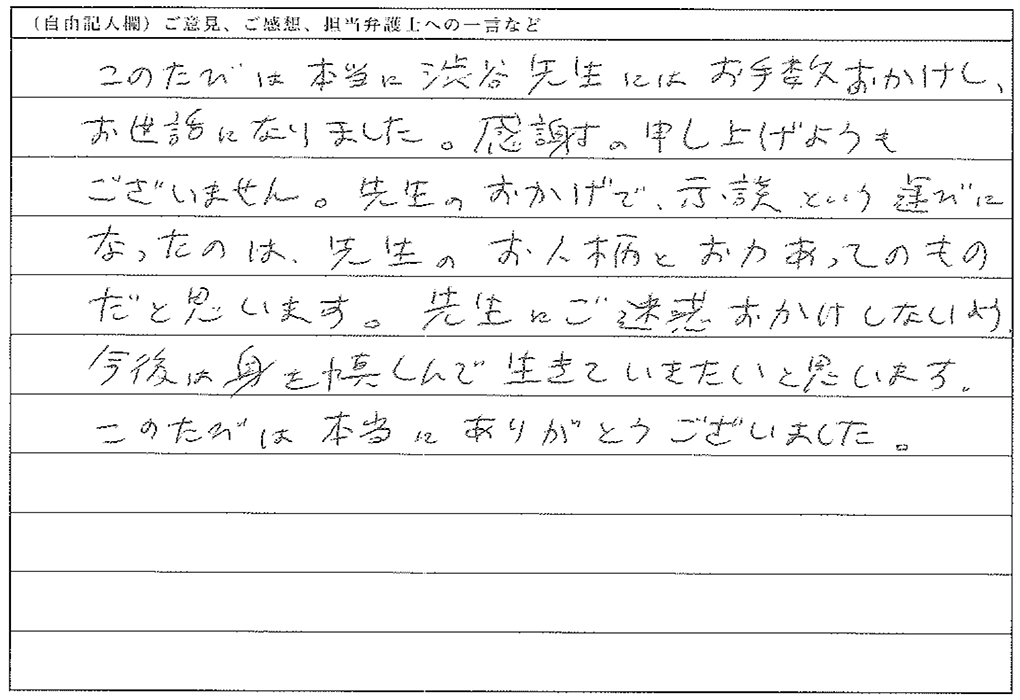 （自由記入欄）ご意見、ご感想、担当弁護士への一言など
このたびは本当に渋谷先生にはお手数おかけし、
お世話になりました。感謝の申し上げようも
ございません。先生のおかげで、示談という運びに
なったのは、先生のお人柄とお力あってのもの
だと思います。先生にご迷惑おかけしないよう、
今後は身を慎しんで生きていきたいと思います。
このたびは本当にありがとうございました。